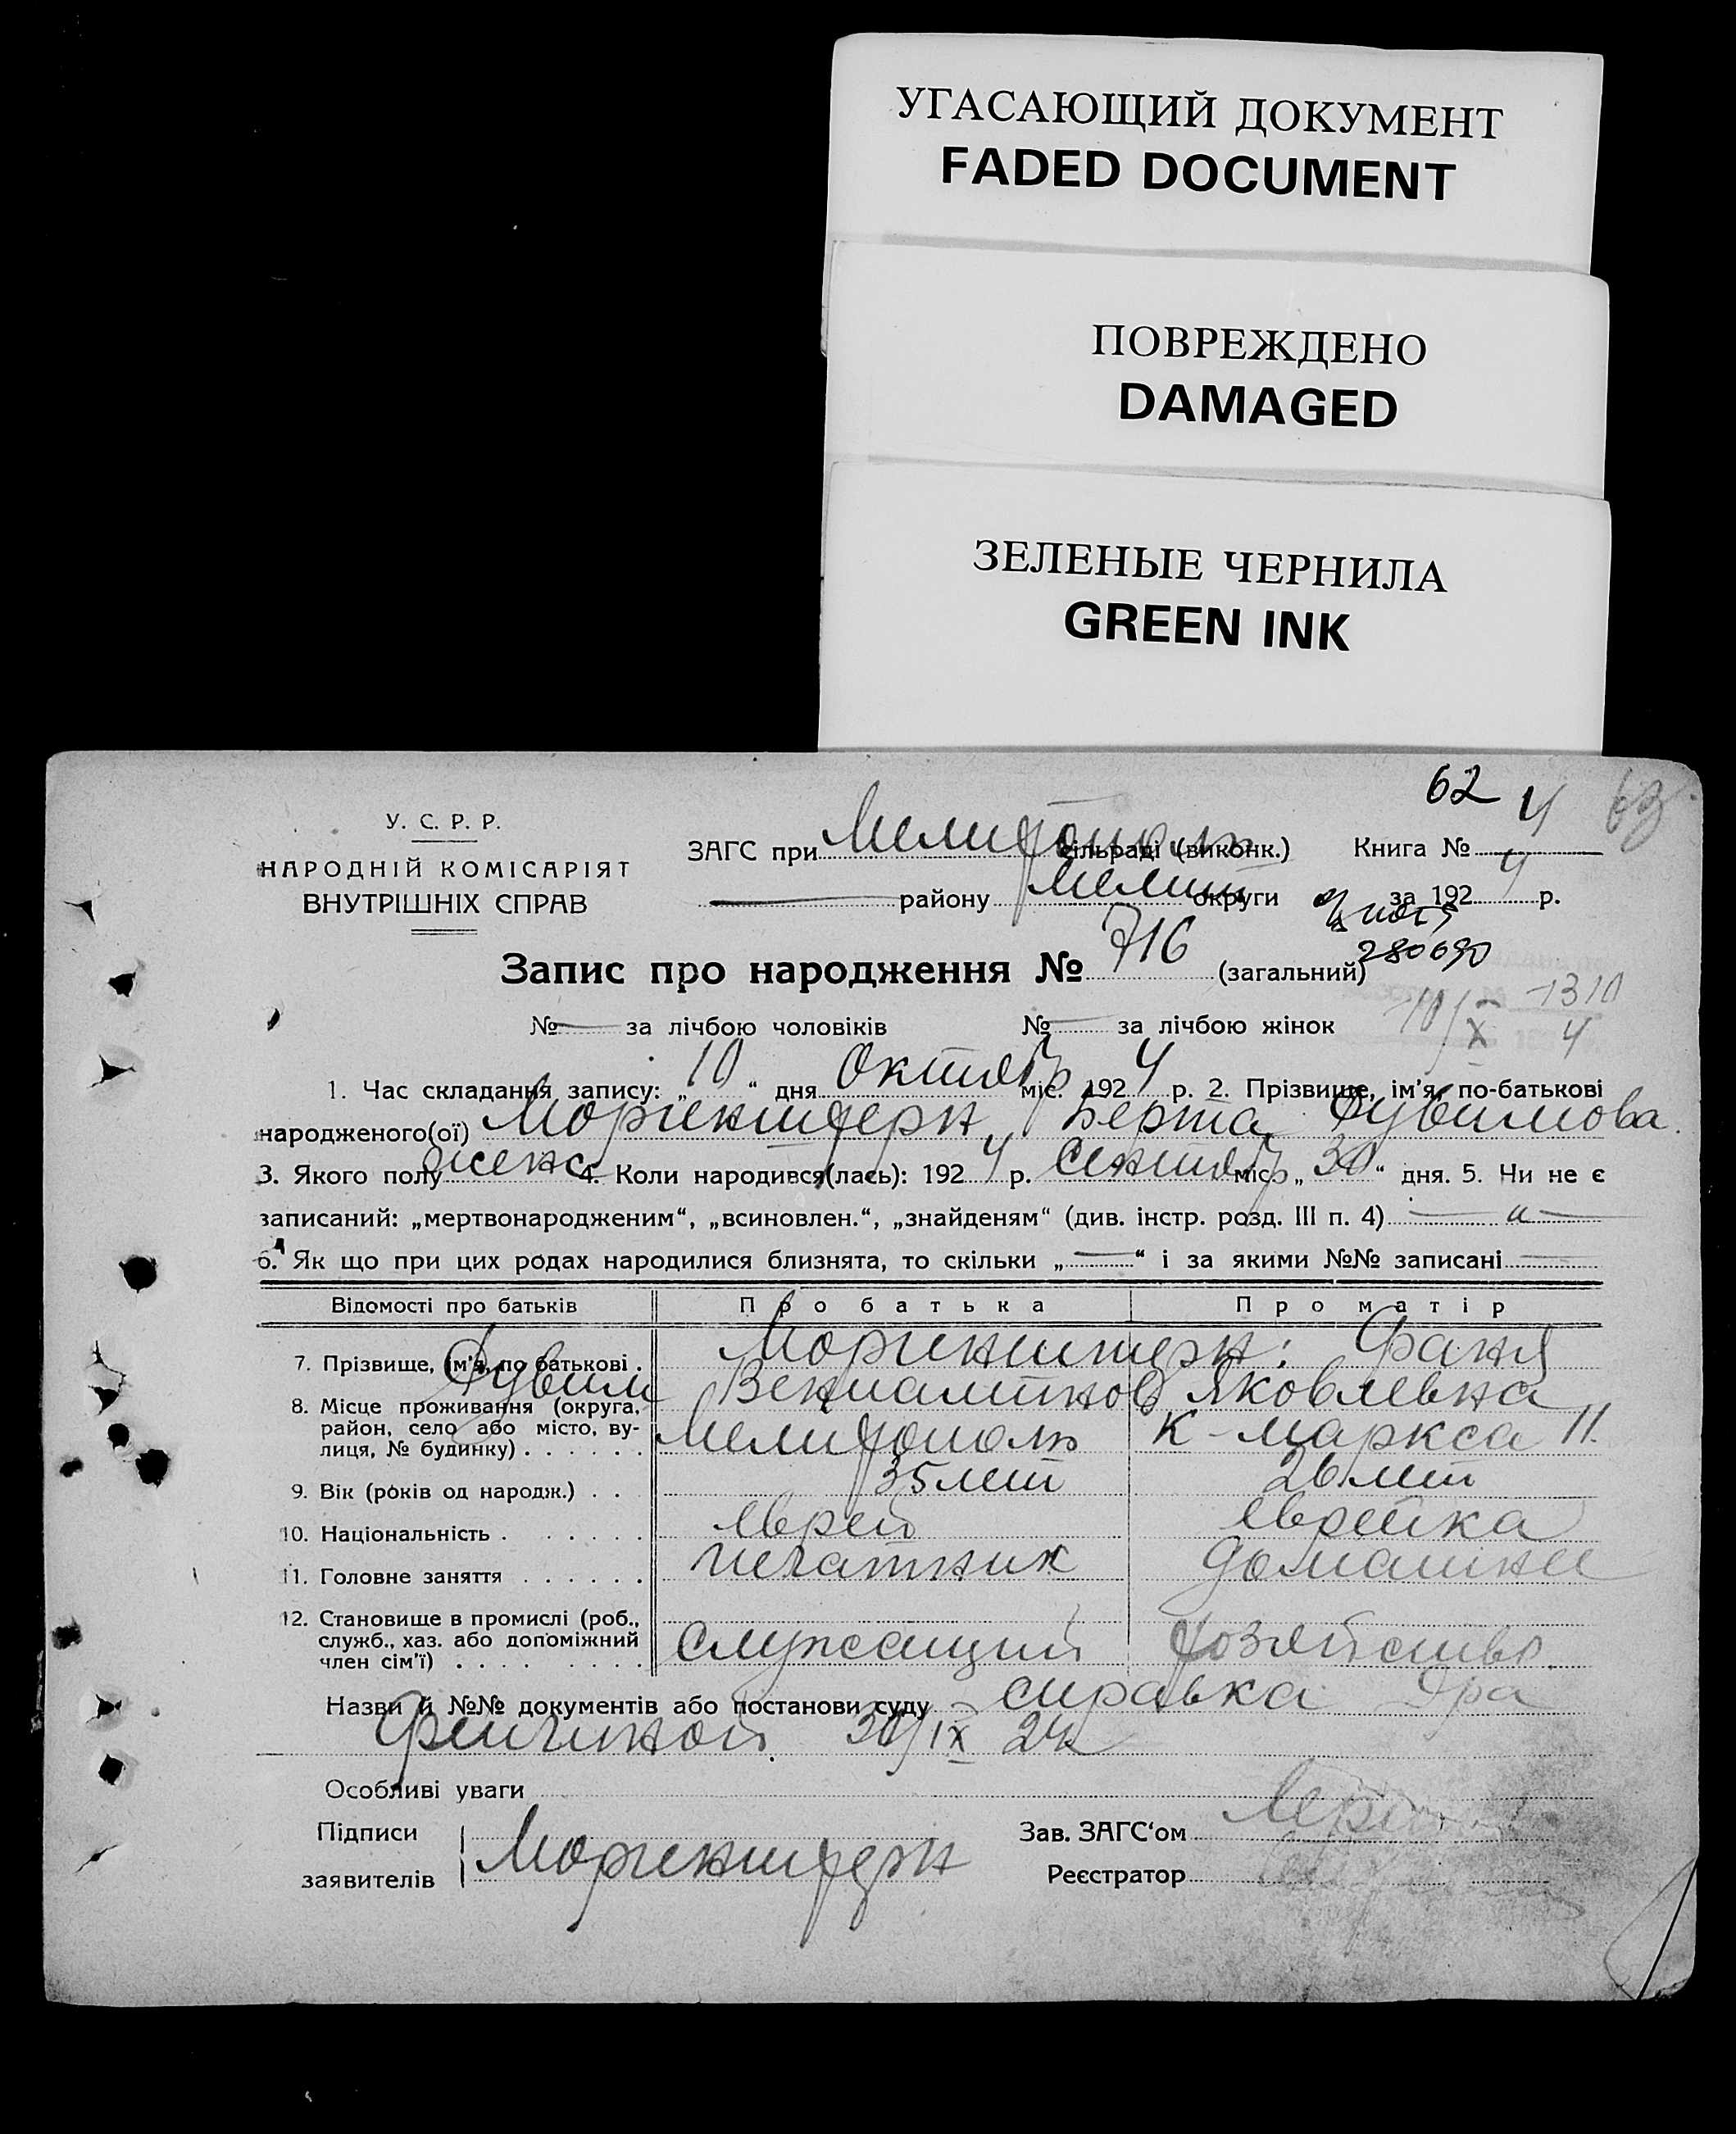 УГАСАЮЩИЙ ДОКУМЕНТ
FADED DOCUMENT
ПОВРЕЖДЕНО
DAMAGED
ЗЕЛЕНЫЕ ЧЕРНИЛА
GREEN INK
62 4 63
У. С. Р. Р.
НАРОДНІЙ КОМІСАРІЯТ
ВНУТРІШНІХ СПРАВ
ЗАГС при Мелитополь сільраді (виконк.) Книга №
району Мелит округи за 1924 р.
280690
Запис про народження № 716 (загальний)
10/X 1310 4
№ за лічбою чоловіків № за лічбою жінок
1. Час складання запису: „10“ дня Октябр міс. 1924 р. 2. Прізвище, ім’я, по-батькові
народженого(ої) Моргенштерн Берта Дувимова
3. Якого полу женс 4. Коли народився(лась): 1924 р. Сентябр міс „30“ дня. 5. Чи не є
записаний: „мертвонародженим“, „всиновлен.“, „знайденям“ (див. інстр. розд. III п. 4)
6. Як що при цих родах народилися близнята, то скільки „—“ і за якими №№ записані
Відомості про батьків Про батька Про матір
7. Прізвище, ім’я, по батькові . Моргенштерн: Фаня
Дувим Вениаминов Яковлевна
8. Місце проживання (округа, район, село або місто, вулиця, № будинку) . . . . . . Мелитополь К-Маркса 11.
9. Вік (років од народж.) . . 35 лет 26 лет
10. Національність . . . . . . Еврей Еврейка
11. Головне заняття . . . . . . печатник домашнее
12. Становище в промислі (роб., служб., хаз. або допоміжний член сім’ї) . . . . . . . . служащий хозяйство
Назви й №№ документів або постанови суду справка Вра
30/IX 24
Особливі уваги
Підписи
заявителів Моргенштерн
Зав. ЗАГС‘ом
Реєстратор